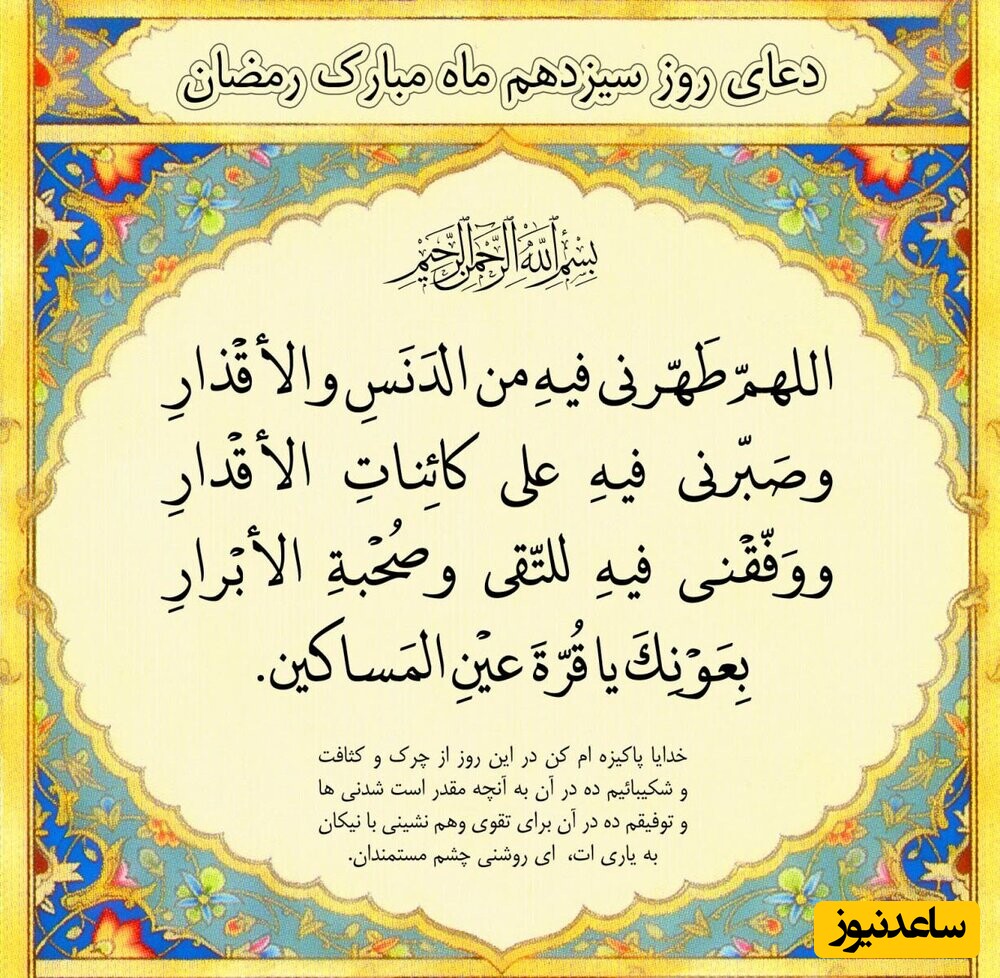 دعای روز سیزدهم ماه مبارک رمضان
بِسْمِ ٱللَّهِ ٱلرَّحْمَٰنِ ٱلرَّحِيمِ
اللهمّ طَهّرنی فیهِ من الدَنَسِ والأقْذارِ
وصَبّرنی فیهِ علی کائِناتِ الأقْدارِ
ووَفّقْنی فیهِ للتّقی وصُحْبةِ الأبْرارِ
بِعَوْنِكَ یا قُرّةَ عیْنِ المَساکین.
خدایا پاکیزه ام کن در این روز از چرک و کثافت
و شکیبائیم ده در آن به آنچه مقدر است شدنی ها
و توفیقم ده در آن برای تقوی وهم نشینی با نیکان
به یاری ات، ای روشنی چشم مستمندان.
ساعدنیوز